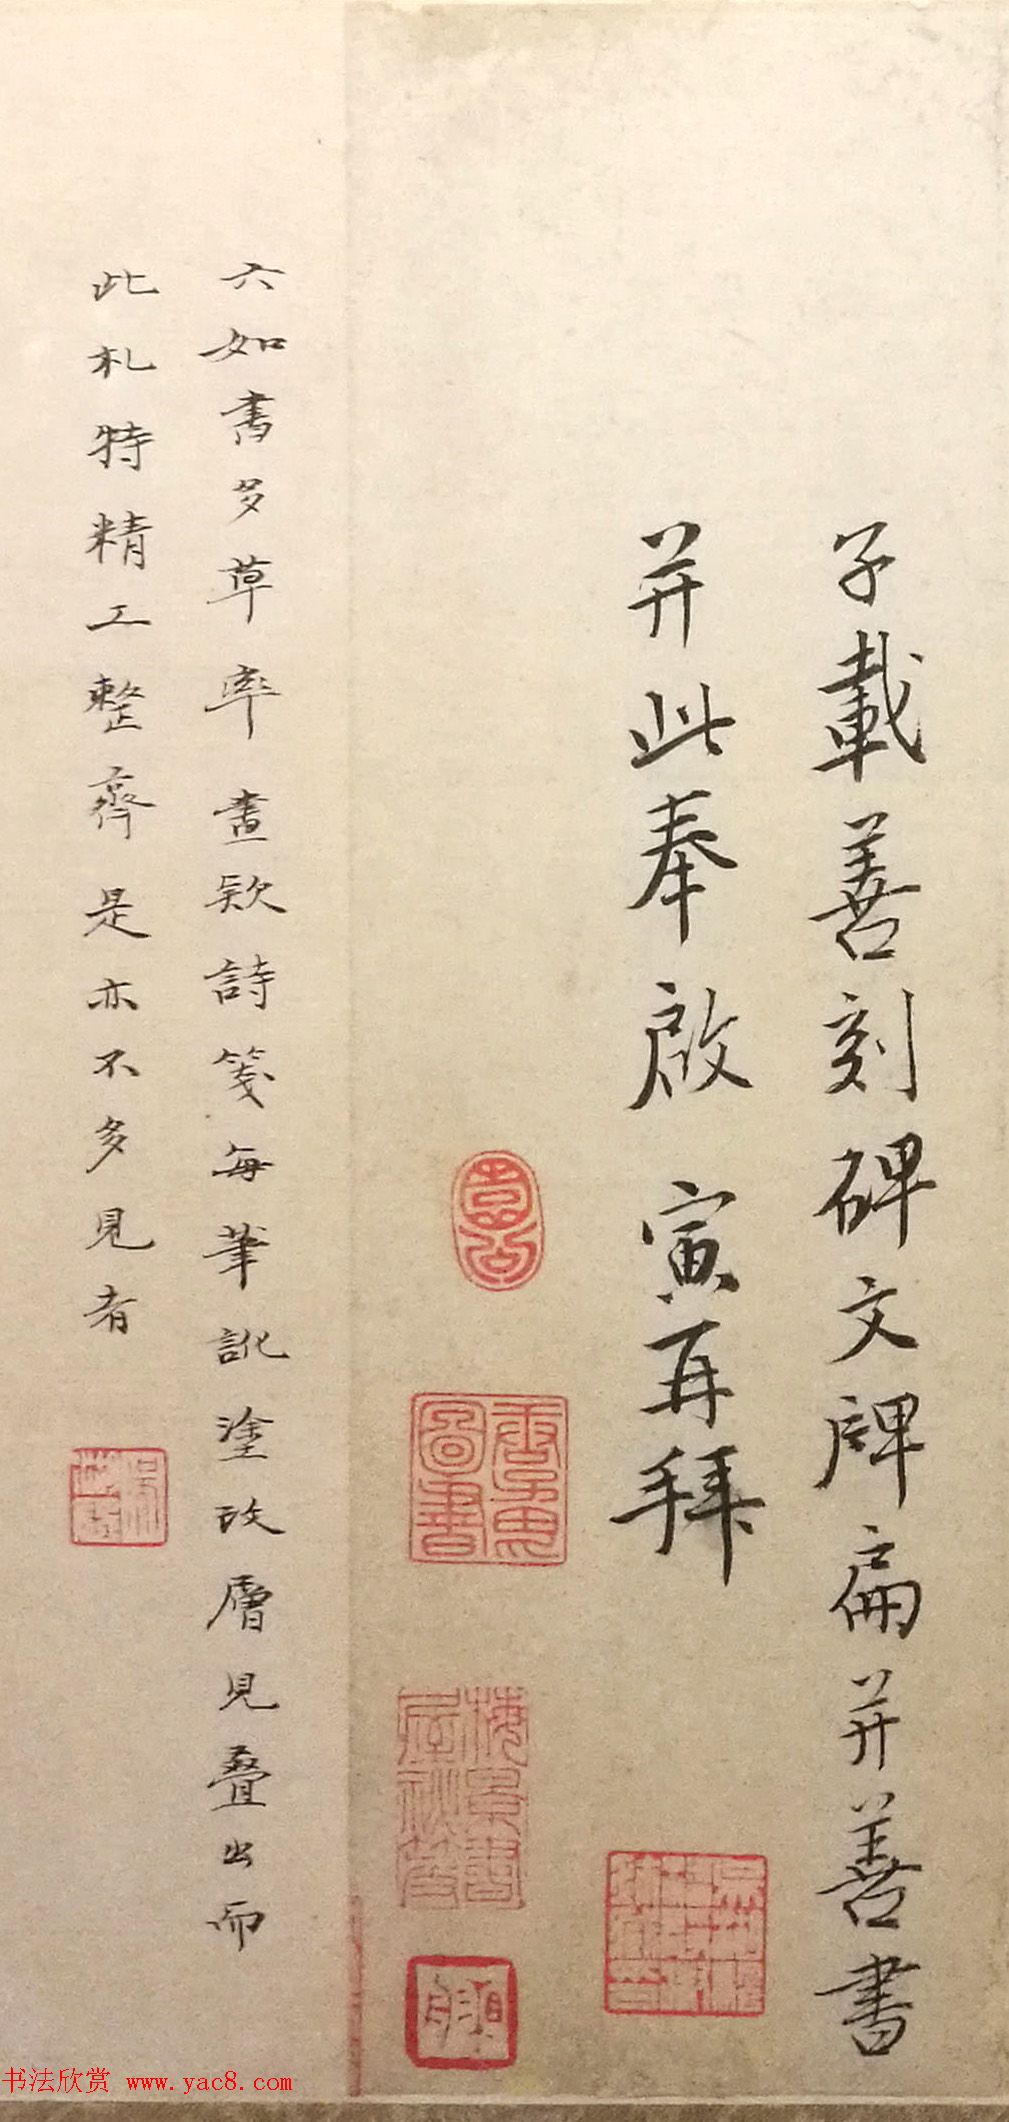 子載善刻碑文牌扁并善書
并此奉啟　寅再拜
六如書多草率畫款詩箋每筆訛塗改層見叠出而
此札特精工整齊是亦不多見者
圖書
梅景書屋秘笈
书法欣赏 www.yac8.com